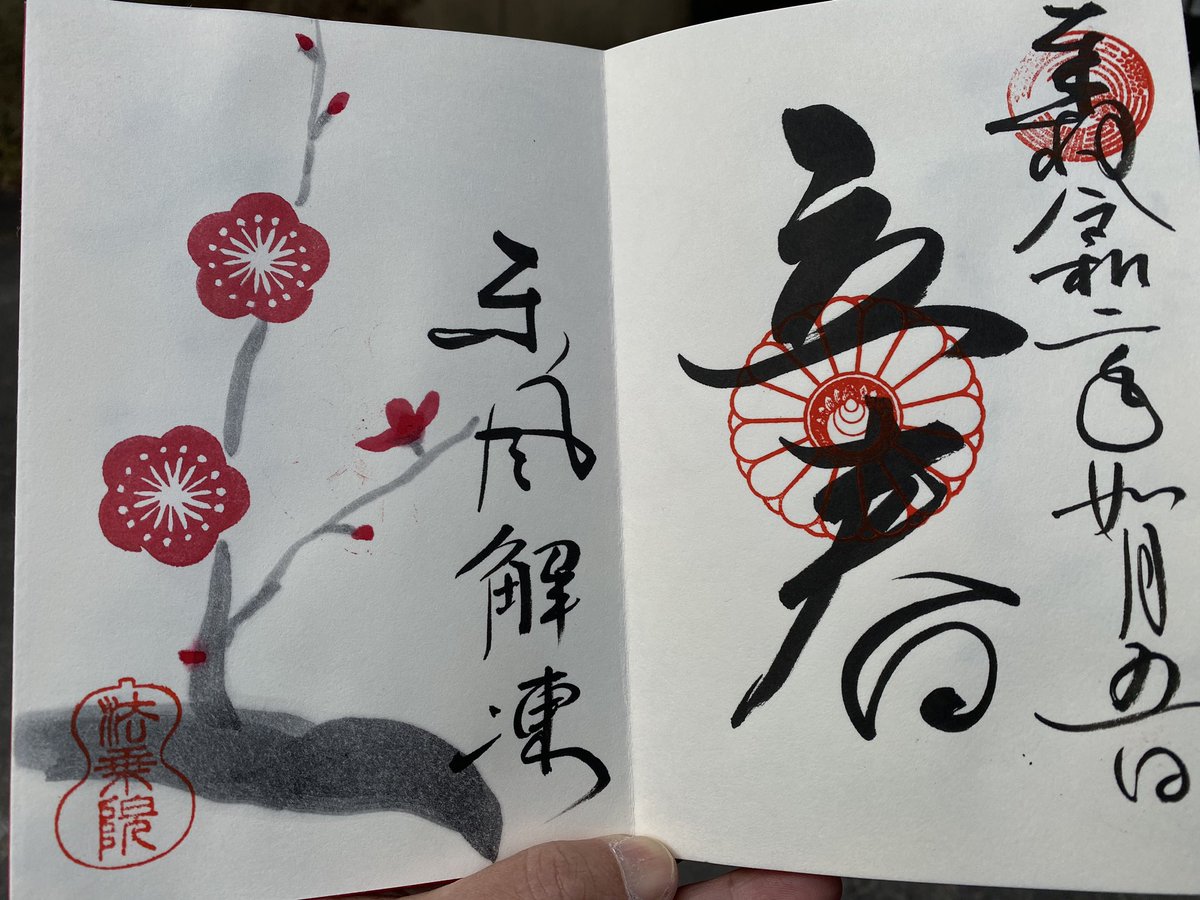 奉拝 令和二年如月五日
立春
東風解凍
法乗院